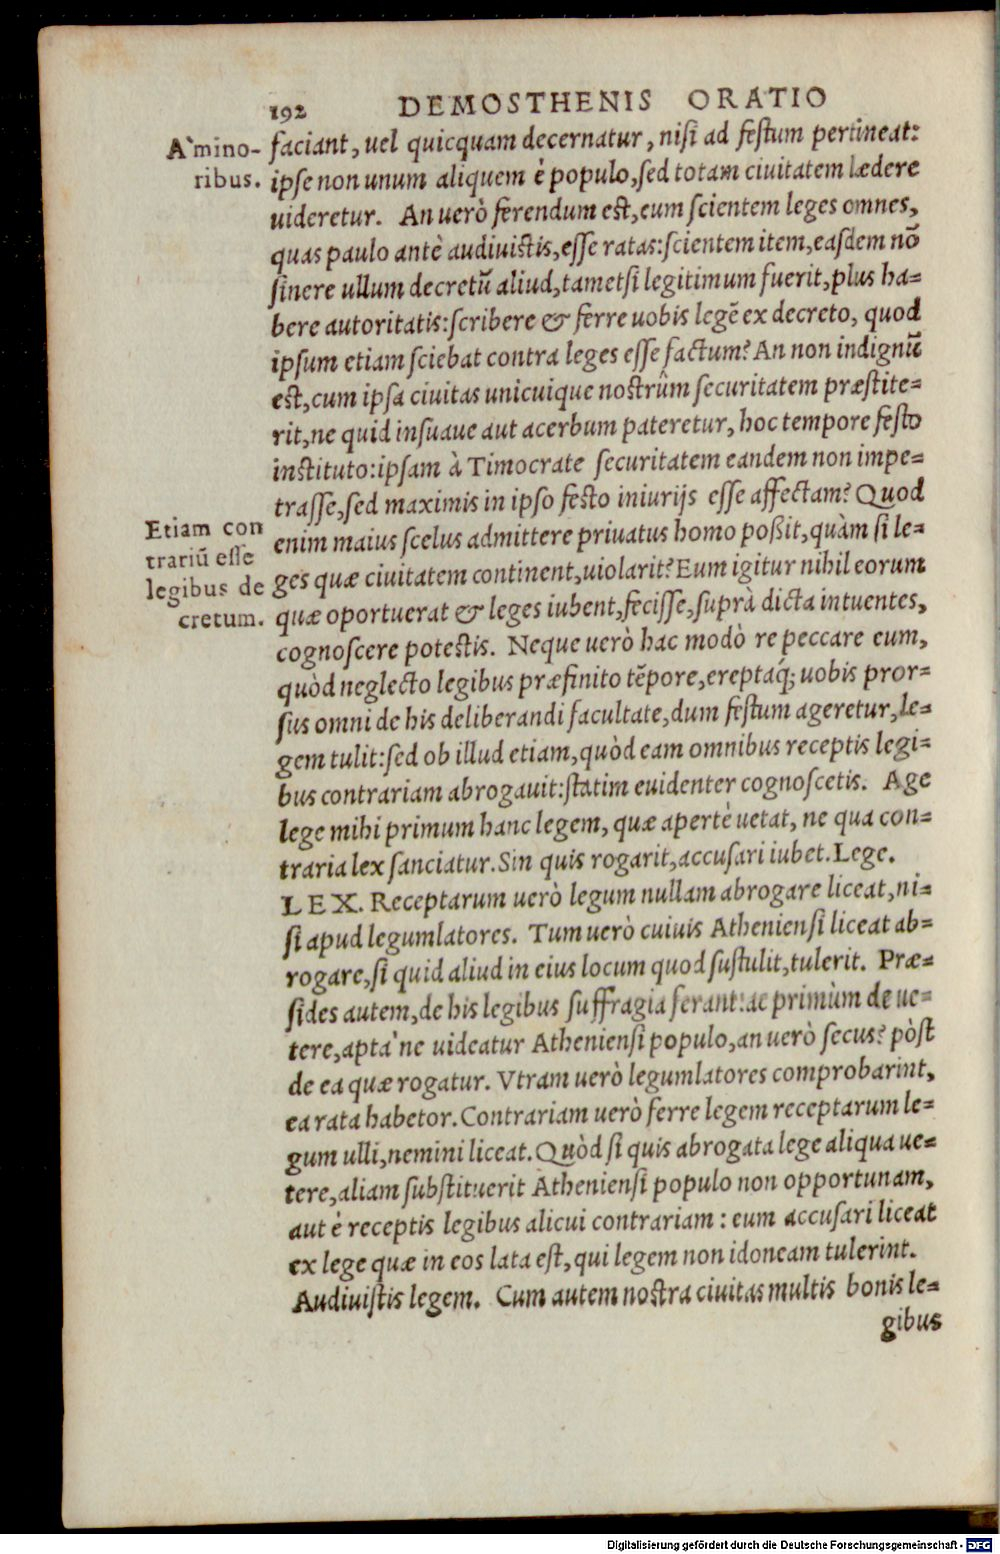 192 DEMOSTHENIS ORATIO
A`mino-
ribus.
faciant, uel quicquam decernatur, nisi ad festum pertineat:
ipse non unum aliquem è populo, sed totam ciuitatem lædere
uideretur. An uerò ferendum est, eum scientem leges omnes,
quas paulo antè audiuistis, esse ratas: scientem item, easdem nõ
sinere ullum decretũ aliud, tametsi legitimum fuerit, plus ha=
bere autoritatis: scribere & ferre uobis legẽ ex decreto, quod
ipsum etiam sciebat contra leges esse factum? An non indignũ
est, cum ipsa ciuitas unicuique nostrûm securitatem præstite=
rit, ne quid insuaue aut acerbum pateretur, hoc tempore festo
instituto: ipsam à Timocrate securitatem eandem non impe=
trasse, sed maximis in ipso festo iniurijs esse affectam? Quod
Etiam con
trariũ esse
legibus de
cretum.
enim maius scelus admittere priuatus homo poßit, quàm si le=
ges quæ ciuitatem continent, uiolarit? Eum igitur nihil eorum
quæ oportuerat & leges iubent, fecisse, suprà dicta intuentes,
cognoscere potestis. Neque uerò hac modò re peccare eum,
quòd neglecto legibus præfinito tẽpore, ereptaq́; uobis pror=
sus omni de his deliberandi facultate, dum festum ageretur, le=
gem tulit: sed ob illud etiam, quòd eam omnibus receptis legi=
bus contrariam abrogauit: statim euidenter cognoscetis. Age
lege mihi primum hanc legem, quæ apertè uetat, ne qua con=
traria lex sanciatur. Sin quis rogarit, accusari iubet. Lege.
LEX. Receptarum uerò legum nullam abrogare liceat, ni=
si apud legumlatores. Tum uerò cuiuis Atheniensi liceat ab=
rogare, si quid aliud in eius locum quod sustulit, tulerit. Præ=
sides autem, de his legibus suffragia ferant: ac primùm de ue=
tere, apta`ne uideatur Atheniensi populo, an uerò secus? pòst
de ea quæ rogatur. Vtram uerò legumlatores comprobarint,
ea rata habetor. Contrariam uerò ferre legem receptarum le=
gum ulli, nemini liceat. Quòd si quis abrogata lege aliqua ue=
tere, aliam substituerit Atheniensi populo non opportunam,
aut è receptis legibus alicui contrariam: eum accusari liceat
ex lege quæ in eos lata est, qui legem non idoneam tulerint.
Audiuistis legem. Cum autem nostra ciuitas multis bonis le=
gibus
Digitalisierung gefördert durch die Deutsche Forschungsgemeinschaft - DFG